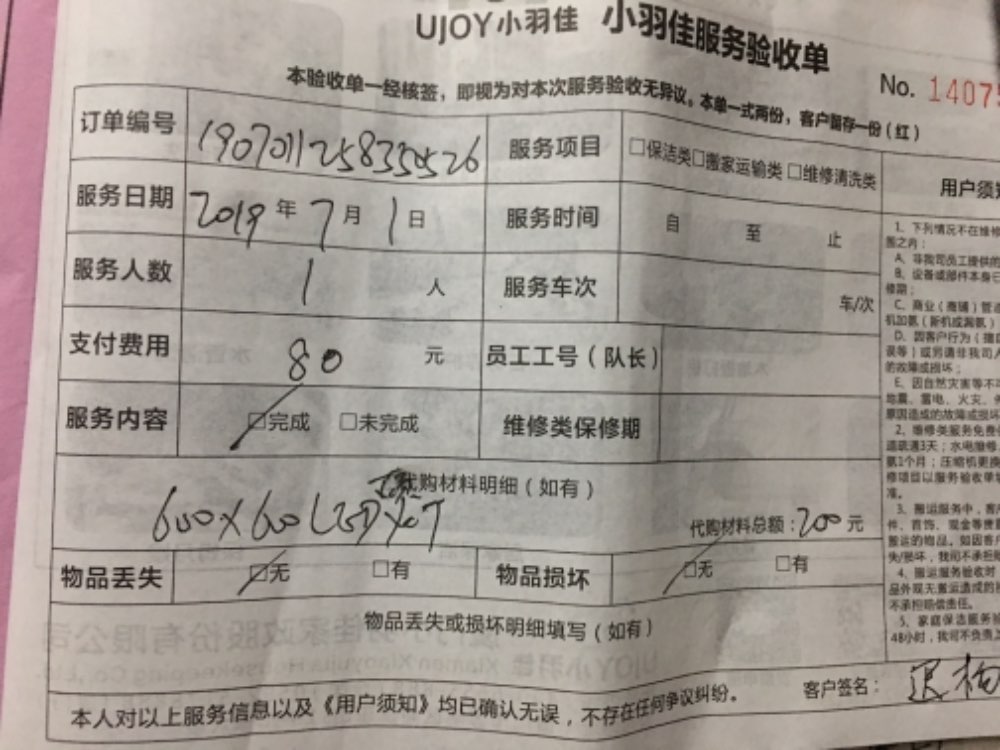 UJOY小羽佳 小羽佳服务验收单
No. 1407
本验收单一经核签，即视为对本次服务验收无异议。本单一式两份，客户留存一份（红）
订单编号 190701125833526 服务项目 □保洁类□搬家运输类 □维修清洗类
服务日期 2019年7月1日 服务时间 自 至 止
服务人数 1 人 服务车次 车/次
支付费用 80 元 员工工号（队长）
服务内容 □完成 □未完成 维修类保修期
代购材料明细（如有）
600×600 LED 灯
代购材料总额：200元
物品丢失 □无 □有 物品损坏 □无 □有
物品丢失或损坏明细填写（如有）
客户签名：
本人对以上服务信息以及《用户须知》均已确认无误，不存在任何争议纠纷。
用户须
1、下列情况不在维修
围之内：
A、非我司员工提供的
B、设备或部件本身
修期；
C、商业（商铺）管
机加氨（新机或漏氨）
D、因客户行为（撞
误等）或另请非我司人
的故障或损坏；
E、因自然灾害等不
地震、雷电、火灾、
原因造成的故障或损坏
2、维修类服务免费
道疏通3天；水电维修
氨1个月；压缩机更换
修项目以服务验收单
准。
3、搬运服务中，客
件、首饰、现金等贵
搬运的物品。如因客户
失/损坏，我司不承担
4、搬运服务验收时
品外观无搬运造成的
不承担赔偿责任。
5、家庭保洁服务
48小时，我司不负责